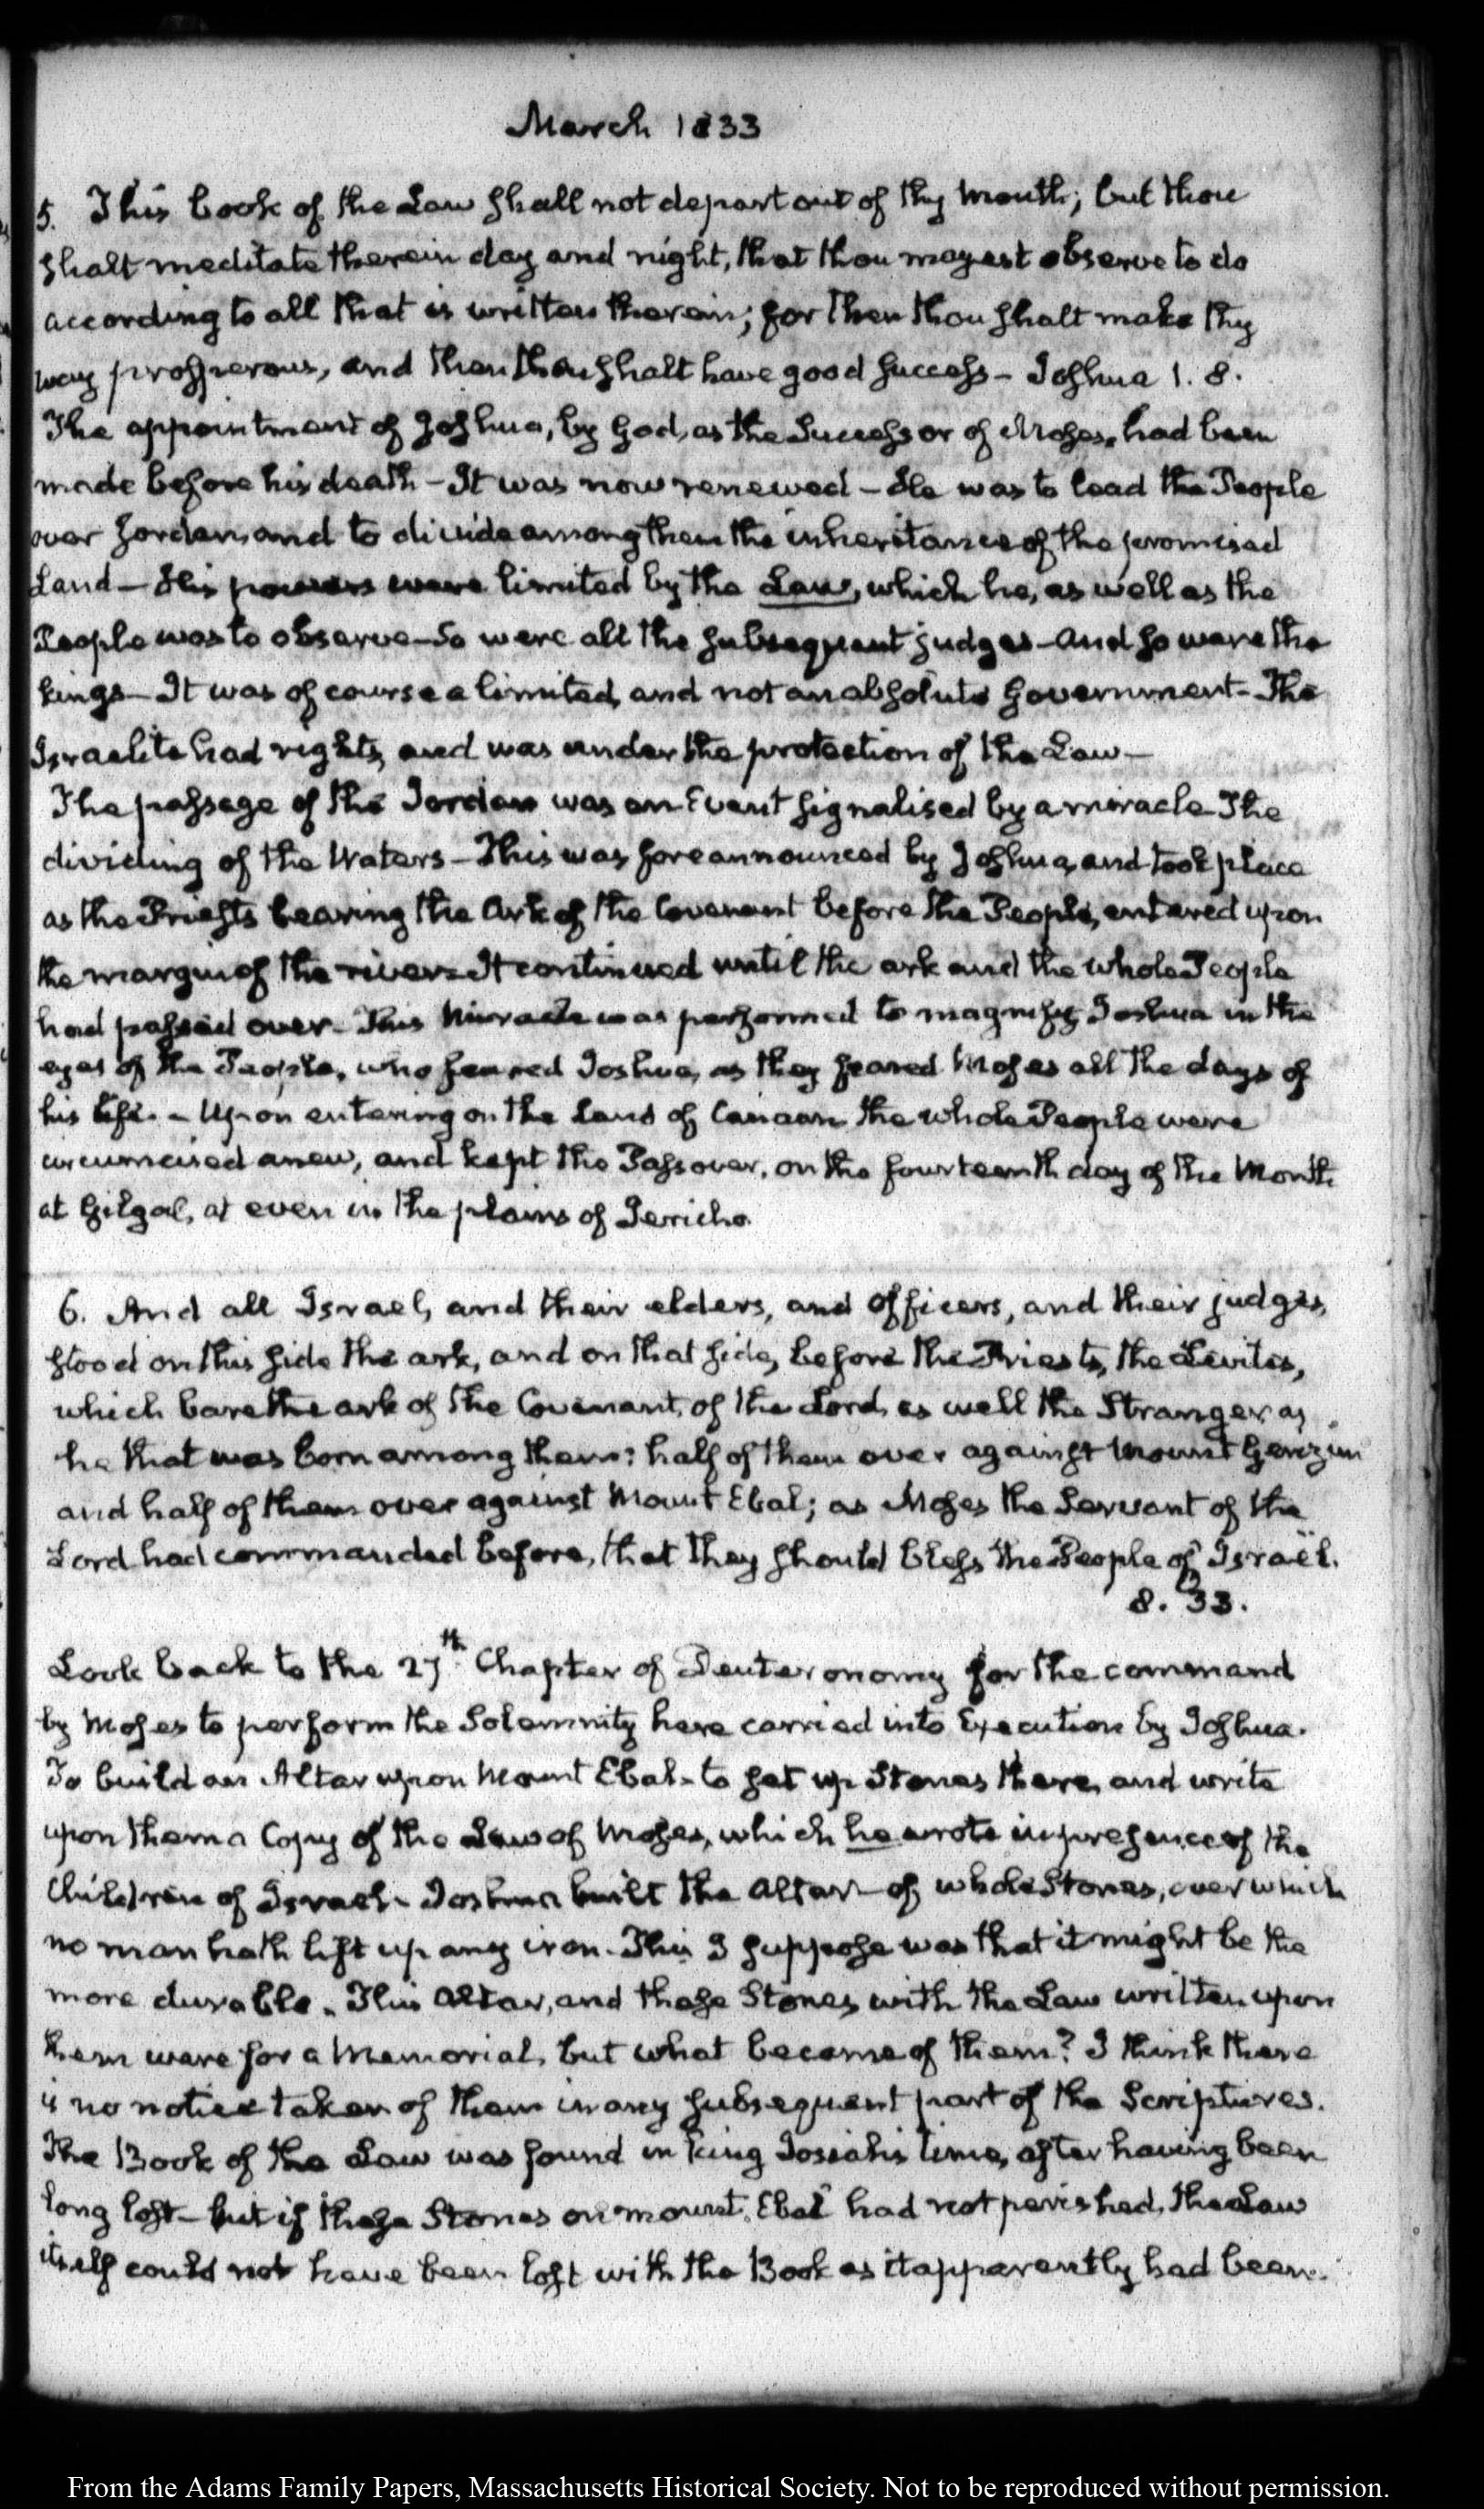 March 1833
5. This book of the Law shall not depart out of thy mouth; but thou
shalt meditate therein day and night, that thou mayest observe to do
according to all that is written therein; for then thou shalt make thy
way prosperous, and then thou shalt have good success – Joshua 1. 8.
The appointment of Joshua, by God, as the Successor of Moses, had been
made before his death – It was now renewed – He was to lead the People
over Jordan, and to divide among them the inheritance of the promised
Land – His powers were limited by the Law, which he, as well as the
People was to observe – So were all the subsequent judges – And so were the
kings – It was of course a limited, and not an absolute Government – The
Israelite had rights, and was under the protection of the Law –
The passage of the Jordan was an Event signalised by a miracle – The
dividing of the Waters – This was foreannounced by Joshua, and took place
as the Priests bearing the Ark of the Covenant before the People, entered upon
the margin of the river – It continued until the ark and the whole People
had passed over – This Miracle was performed to magnify Joshua in the
eyes of the People, who feared Joshua, as they feared Moses all the days of
his life. – Upon entering on the Land of Canaan the whole People were
circumcised anew, and kept the Passover, on the fourteenth day of the Month
at Gilgal, at even in the plains of Jericho.
6. And all Israel, and their elders, and officers, and their judges,
stood on this side the ark, and on that side, before the Priests, the Levites,
which bare the ark of the Covenant, of the Lord, as well the Stranger as
he that was born among them: half of them over against Mount Gerizim
and half of them over against Mount Ebal; as Moses the Servant of the
Lord had commanded before, that they should bless the People of Israël.
8. 33.
Look back to the 27th. Chapter of Deuteronomy for the command
by Moses to perform the Solemnity here carried into Execution by Joshua.
To build an Altar upon Mount Ebal – to set up Stones there, and write
upon them a Copy of the Law of Moses, which he wrote in presence of the
Children of Israel – Joshua built the Altar – of whole Stones, over which
no man hath lift up any iron. This I suppose was that it might be the
more durable. This Altar, and these Stones with the Law written upon
them were for a Memorial, but what became of them? I think there
is no notice taken of them in any subsequent part of the Scriptures.
The Book of the Law was found in king Josiah's time, after having been
long lost – but if these Stones on mount Ebal had not perished, the Law
itself could not have been lost with the Book as it apparently had been.
From the Adams Family Papers, Massachusetts Historical Society. Not to be reproduced without permission.